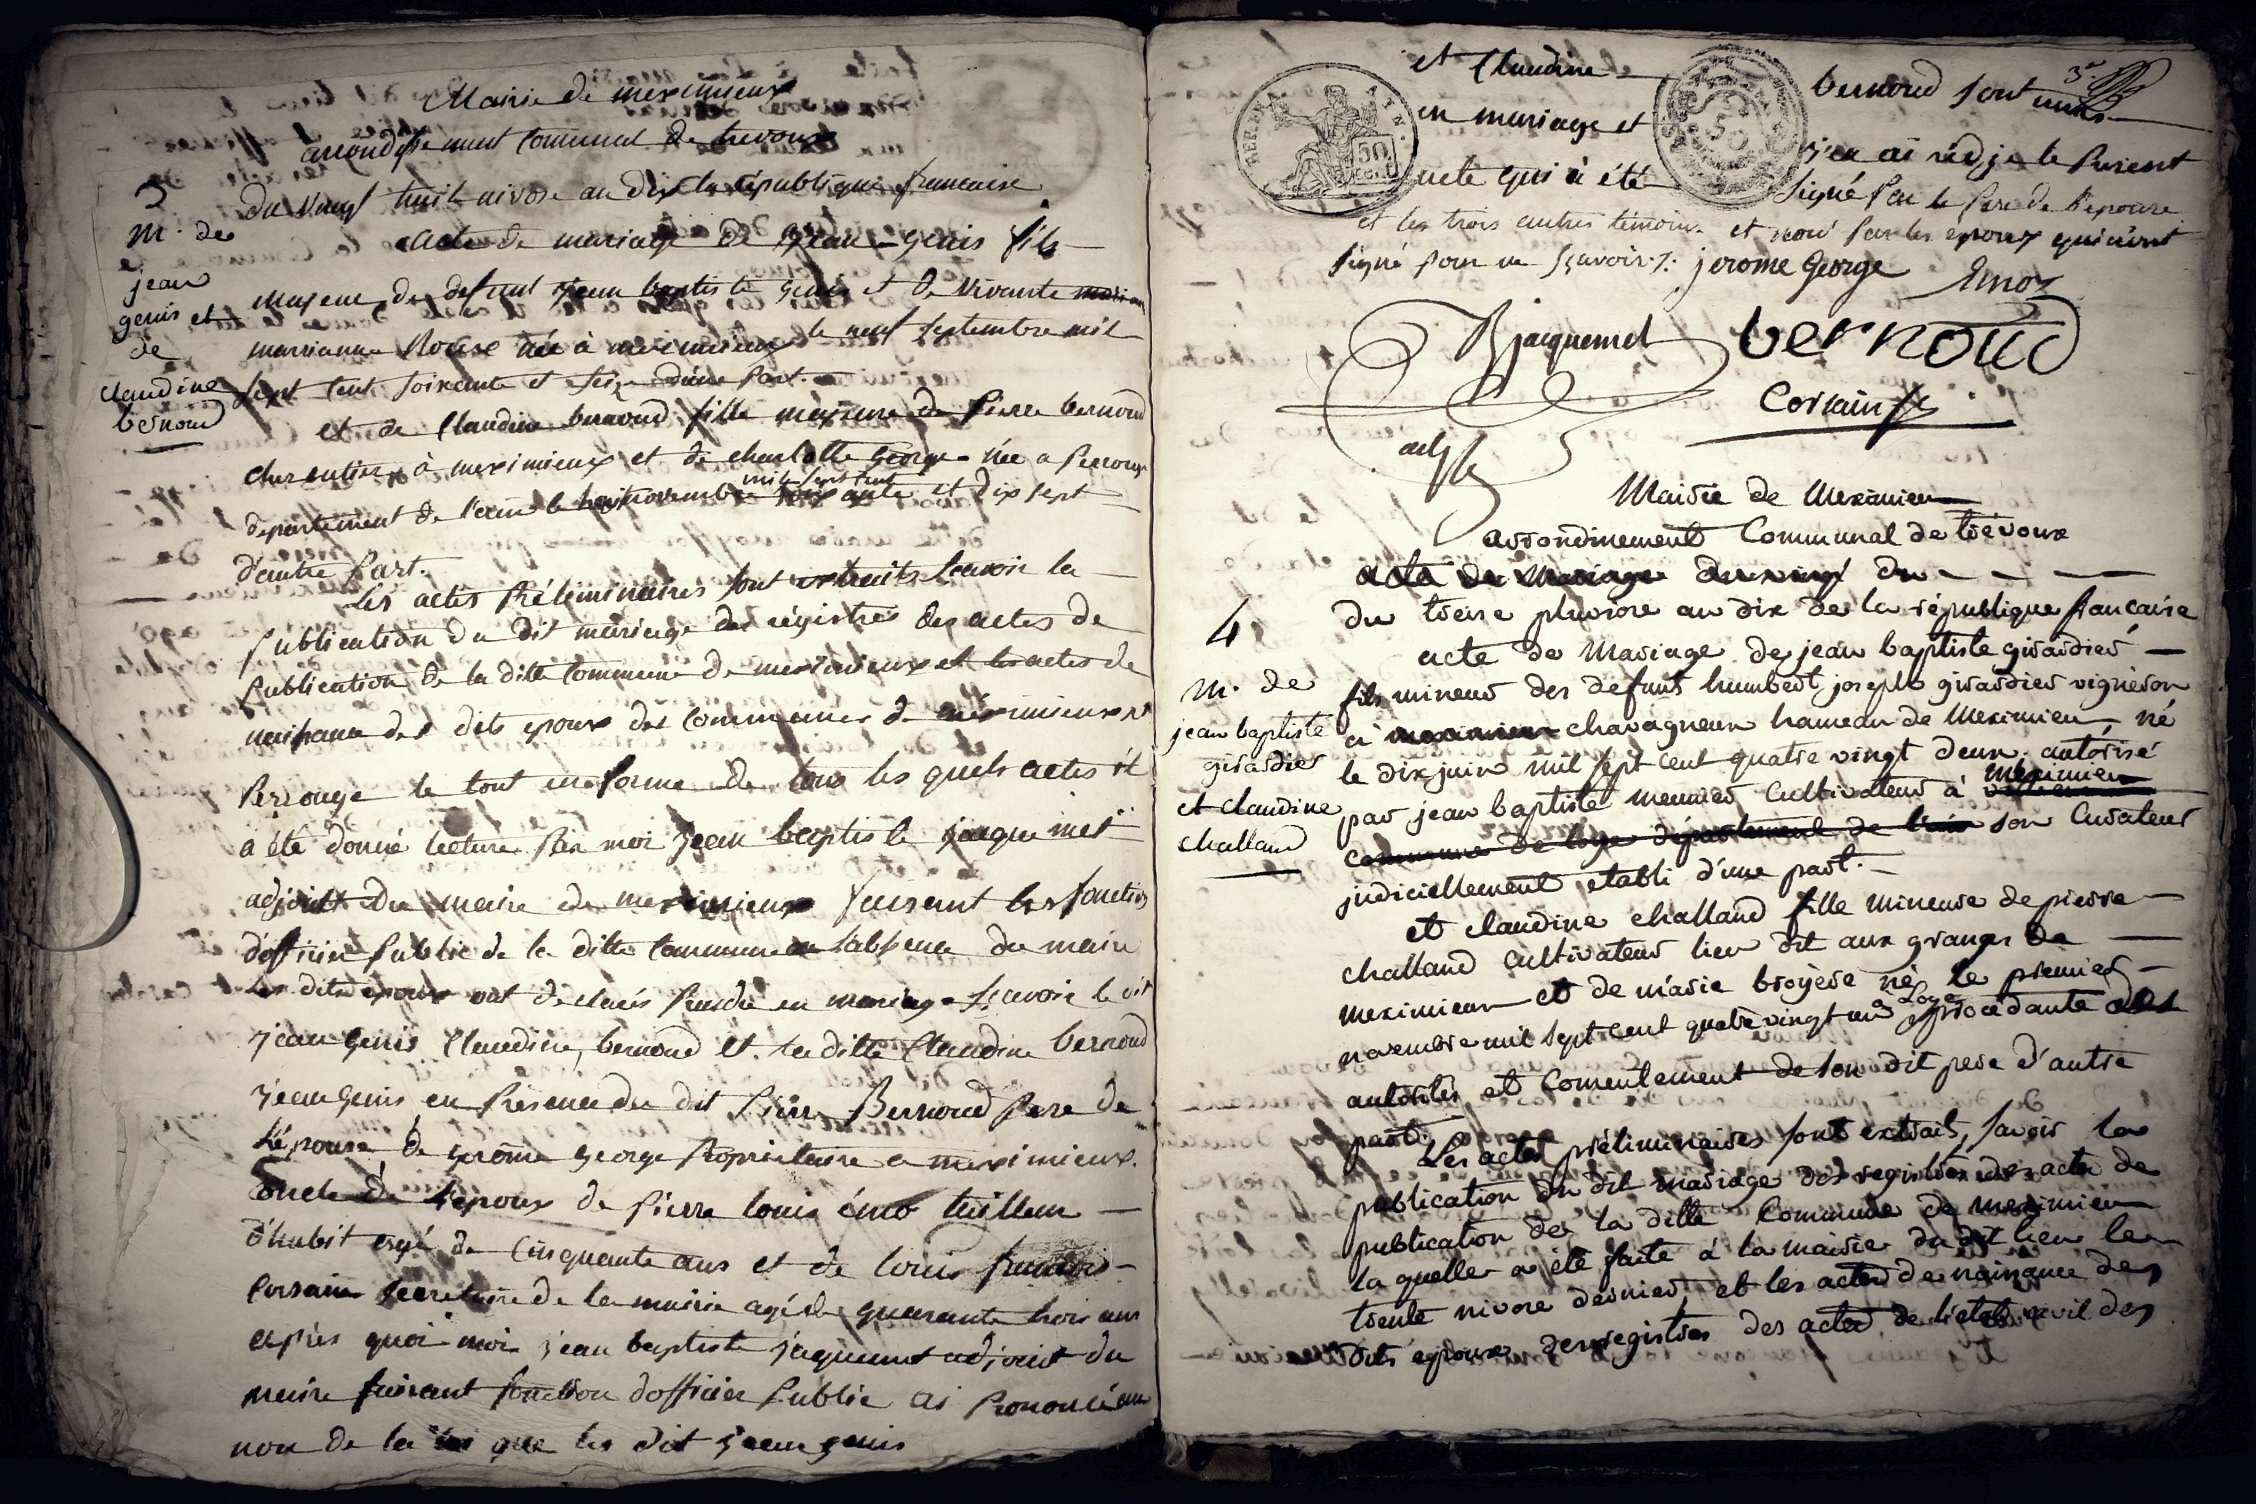 Mairie de meximieux
arrondissement Communal de trevoux
3
m. de
jean
genis et
de
claudine
bernoud
du vingt huit nivose an dix la république francaise
acte de mariage de Jean Genis fils
majeur de defunt Jean baptiste Genis et de vivante
marrianne née à meximieux le neuf septembre mil
sept cent soixante et seize d'une Part.
et de Claudine bernoud fille majeure de Pierre bernoud
charpentier à meximieux et de charlotte George née a Perouge
departement de l'ain le huit novembre mil sept cent soixante et dix sept
d'autre Part.
Les actes Préliminaires sont extraits scavoir la
Publication du dit mariage des régistres des actes de
Publication de la ditte Commune de meximieux et les actes de
naissance des dits epoux des communes de méximieux et
Perrouge le tout en forme de tous les quels actes il
à été donné lecture Par moi Jean baptiste jacquemet
adjoint du maire de meximieux faisant les fonctions
d'officier Public de la ditte Commune en l'absence du maire
Les dits epoux ont declarés Prendre en mariage scavoir le dit
Jean Genis Claudine bernoud et la ditte Claudine bernoud
Jean Genis en Présence du dit Pierre Bernoud Pere de
L'épouse de Jerome George Propriétaire a meximieux
oncle de l'epoux de Pierre Louis émoz tailleur
d'habit agé de Cinquante ans et de Louis francois
Corsain secretaire de la mairie agé de quarante trois ans
après quoi moi Jean baptiste jacquemet adjoint du
maire faisant fonction d'officier Public ai Prononcé au
nom de la loi que les dit Jean genis
et Claudine bernoud sont unis
en mariage et j'en ai rédjé le Present
acte qui à été signé Par le Pere de l'epouse
et les trois autres témoins et non Par les epoux qui n'ont
signé pour ne sçavoir. jerome George Emoz
Bjacquemet bernoud
adj
Corsain
Mairie de Meximieu
arrondissement Communal de trévoux
acte de Mariage du vingt du
4
m. de
jean baptiste
girardier
et claudine
challand
du treise pluviose an dix de la république francaise
acte de Mariage de jean baptiste girardier
fils mineur des defunts humbert joseph girardier vigneron
à meximieu chavagneux hameau de Meximieu né
le dix juin mil sept cent quatre vingt deux autorisé
par jean baptiste meunier cultivateur à meximieu
commune de loye département de l'ain son curateur
judiciellement etabli d'une part.
et claudine challand fille mineure de pierre
challand cultivateur lieu dit aux granges de
meximieux et de marie broyere né le premier
novembre mil sept cent quatre vingt un a Loye procédante des
autorités et consentement de son dit pere d'autre
part.
Les actes préliminaires sont extraits, savoir la
publication du dit mariage des registres des actes de
publication de la ditte Commune de meximieu
la quelle a été faite à la mairie du dit lieu le
trente nivose dernier, et les actes de naissance des
dits epoux des registres des actes de l'etat civil des